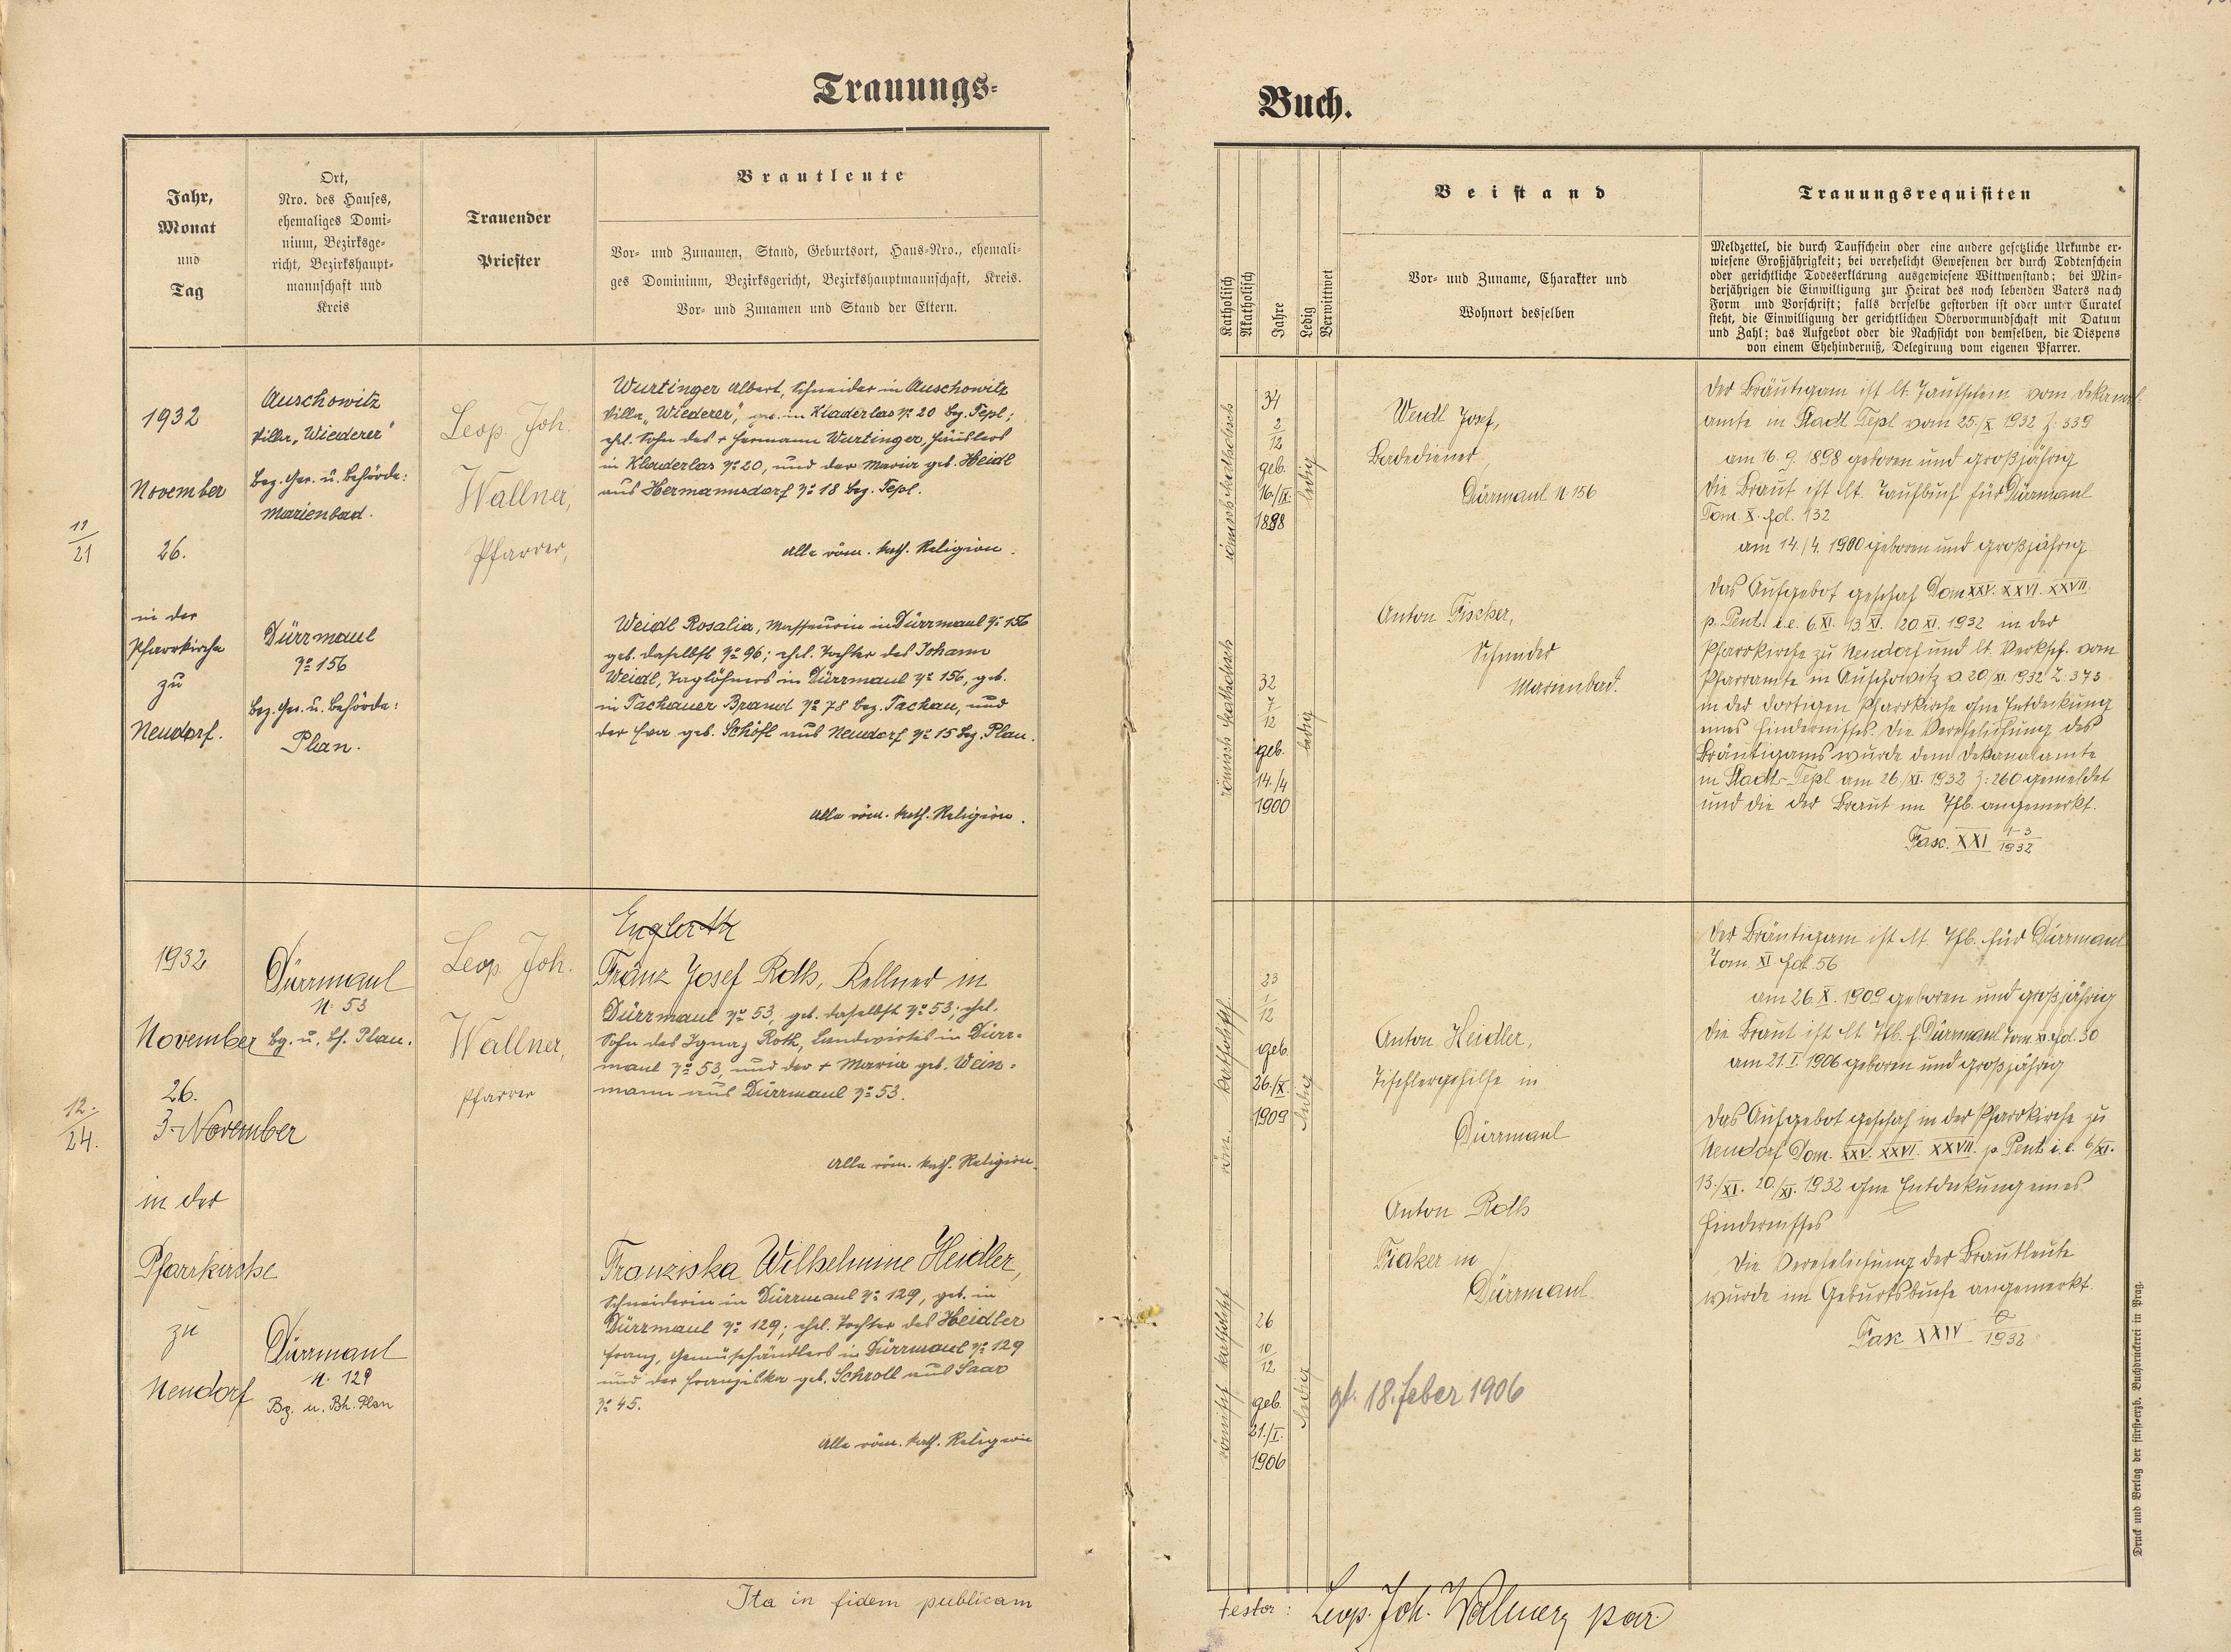 Trauungs-
Jahr,
Monat
und
Tag
Ort,
Nro. des Hauses,
ehemaliges Domi-
nium, Bezirksge-
richt, Bezirkshaupt-
mannschaft und
Kreis
Trauender
Priester
Brautleute
Vor- und Zunamen, Stand, Geburtsort, Haus-Nro., ehemali-
ges Dominium, Bezirksgericht, Bezirkshauptmannschaft, Kreis.
Vor- und Zunamen und Stand der Eltern.
11/21
1932
November
26.
in der
Pfarrkirche
zu
Neudorf.
Auschowitz
Villa „Wiederer"
Bez. Ger. u. Behörde:
Marienbad.
Dürrmaul
No 156
Bez. Ger. u. Behörde:
Plan.
Leop. Joh.
Wallner,
Pfarrer,
Wurtinger Albert, Schneider in Auschowitz
Villa „Wiederer", geb. in Kladerlas No 20 Bez. Tepl;
ehl. Sohn des + Hermann Wurtinger, Häuslers
in Kladerlas No 20, und der Maria geb. Heidl
aus Hermannsdorf No 18 Bez. Tepl.
Alle röm. kath. Religion.
Weidl Rosalia, Masseurin in Dürrmaul No 156
geb. daselbst No 96; ehl. Tochter des Johann
Weidl, Taglöhners in Dürrmaul No 156, geb.
in Tachauer Brand No 78 Bez. Tachau, und
der Eva geb. Schöfl aus Neudorf No 15 Bez. Plan.
Alle röm. kath. Religion.
12./24.
1932
November
26.
3. November
in der
Pfarrkirche
zu
Neudorf
Dürrmaul
N. 53
Bg. u. Bh. Plan.
Dürrmaul
N. 129
Bg. u. Bh. Plan
Leop. Joh.
Wallner,
Pfarrer
Englerth
Franz Josef Roth, Kellner in
Dürrmaul No 53, geb. daselbst No 53; ehl.
Sohn des Ignaz Roth, Landwirtes in Dürr-
maul No 53, und der + Maria geb. Wein-
mann aus Dürrmaul No 53.
Alle röm. kath. Religion.
Franziska Wilhelmine Heidler,
Schneiderin in Dürrmaul No 129, geb. in
Dürrmaul No 129; ehl. Tochter des Heidler
Franz, Gemüsehändlers in Dürrmaul No 129
und der Franziska geb. Schroll aus Saar
No 45.
Alle röm. kath. Religion
Ita in fidem publicam
Buch.
Katholisch
Akatholisch
Jahre
Ledig
Verwittwet
Beistand
Vor- und Zuname, Charakter und
Wohnort desselben
Trauungsrequisiten
Meldzettel, die durch Taufschein oder eine andere gesetzliche Urkunde er-
wiesene Großjährigkeit; bei verehelicht Gewesenen der durch Todtenschein
oder gerichtliche Todeserklärung ausgewiesene Wittwenstand; bei Min-
derjährigen die Einwilligung zur Heirat des noch lebenden Vaters nach
Form und Vorschrift; falls derselbe gestorben ist oder unter Curatel
steht, die Einwilligung der gerichtlichen Obervormundschaft mit Datum
und Zahl; das Aufgebot oder die Nachsicht von demselben, die Dispens
von einem Ehehinderniß, Delegirung vom eigenen Pfarrer.
römisch katholisch
34
2/12
geb.
16./IX.
1898
ledig
römisch katholisch
32
7/12
geb.
14./4
1900
ledig
Weidl Josef,
Badediener,
Dürrmaul N 156
Anton Fischer,
Schneider
Marienbad.
Der Bräutigam ist lt. Taufschein vom Dekanal-
amte in Stadt Tepl vom 25./X. 1932 Z: 339
am 16. 9. 1898 geboren und großjährig
Die Braut ist lt. Taufbuch für Dürrmaul
Tom. X. fol. 132
am 14./4. 1900 geboren und großjährig
Das Aufgebot geschah Dom XXV. XXVI. XXVII.
p. Pent. i. e. 6. XI. 13. XI. 20. XI. 1932 in der
Pfarrkirche zu Neudorf und lt. Verksch. vom
Pfarramte in Auschowitz v. 20./XI. 1932 Z: 373
in der dortigen Pfarrkirche ohne Entdeckung
eines Hindernisses. Die Verehelichung des
Bräutigams wurde dem Dekanalamte
in Stadt-Tepl am 26./XI. 1932 Z: 260 gemeldet
und die der Braut im Tfb. angemerkt.
Fasc. XXI 1-3/1932
röm. katholisch
23
1/12
geb.
26./X.
1909
ledig
römisch katholisch
26
10/12
geb.
21./I.
1906
ledig
Anton Heidler,
Tischlergehilfe in
Dürrmaul
Anton Roth
Fiaker in
Dürrmaul.
gt. 18. Feber 1906
Der Bräutigam ist lt. Tfb. für Dürrmaul
Tom. XI fol. 56
am 26. X. 1909 geboren und großjährig
Die Braut ist lt. Tfb. f. Dürrmaul Tom. XI. fol. 30
am 21. I. 1906 geboren und großjährig
Das Aufgebot geschah in der Pfarrkirche zu
Neudorf Dom. XXV. XXVI. XXVII. p. Pent. i. e. 6/XI.
13./XI. 20./XI. 1932 ohne Entdeckung eines
Hindernisses
Die Verehelichung der Brautleute
wurde im Geburtsbuche angemerkt.
Fasc XXIV /1932
Testor: Leop. Joh. Wallner, par.
Druck und Verlag der fürsterzb. Buchdruckerei in Prag.